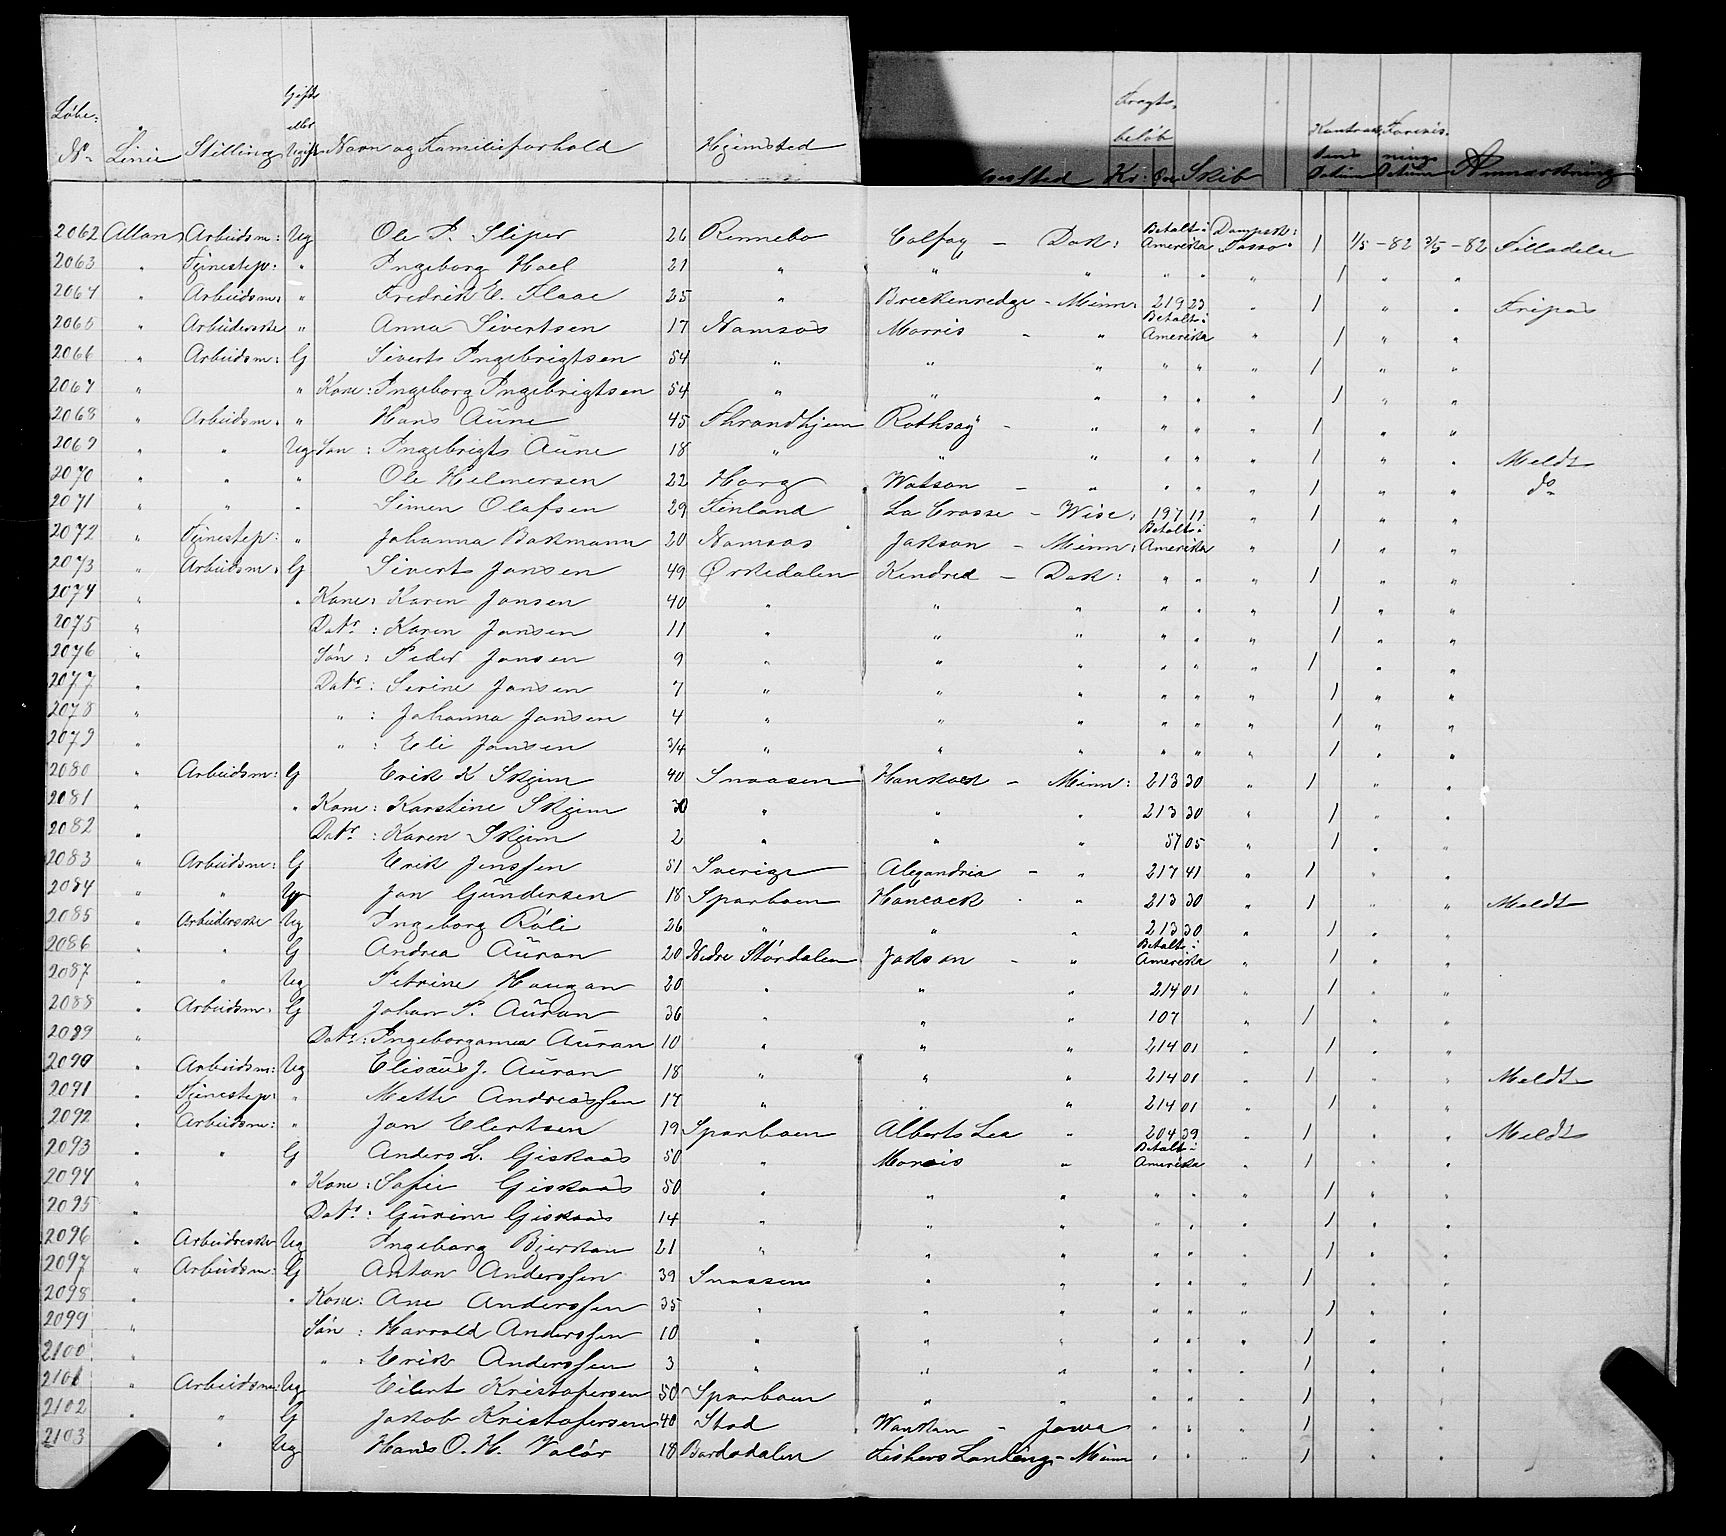 Løbe: No. Linie Stilling Gift eller Ugift Navn og Familieforhold Hjemsted beløb Kr: Øre Skib Anmærkning
2062 Allan Arbeidsm: Ug Ole P. Sliper 26 Rennebo Colfax - Dak: Betalt i Amerika Dampsk: Tasso 1 1/5 - 82 3/5 - 82 Filladelee
2063 " Tjenestep: " Ingeborg Hoel 21 " " " " " " 1 " "
2064 " Arbeidsm: " Fredrik E. Flaae 25 " Breckenredge - Minn: 219 23 " 1 " " Fripas
2065 " Arbeiderske " Anna Sivertsen 17 Namsos Morris - " Betalt i Amerika " 1 " "
2066 " Arbeidsm: G Siverts Ingebrigtsen 54 " " " " " " 1 " "
2067 " " Kone: Ingeborg Ingebrigtsen 54 " " " " " " 1 " "
2068 " Arbeidsm. " Hans Aune 45 Thrandhjem Rothsay - " " " " 1 " "
2069 " " Ug Søn: Ingebrigts Aune 18 " " " " " " 1 " " Meldt
2070 " " " Ole Helmersen 22 Horg Watson - " " " " 1 " " do
2071 " " " Simen Olafsen 29 Finland La Crosse - Wisc: 197 11 " 1 " "
2072 " Tjenestep: " Johanna Bakmann 20 Namsos Jakson - Minn: Betalt i Amerika " 1 " "
2073 " Arbeidsm: G Siverts Jansen 49 Ørkedalen Kendred - Dak: " " " 1 " "
2074 " " Kone: Karen Jansen 40 " " " " " " 1 " "
2075 " Datr: Karen Jansen 11 " " " " " " 1 " "
2076 " Søn: Peder Jansen 9 " " " " " " 1 " "
2077 " Datr: Serine Jansen 7 " " " " " " 1 " "
2078 " " : Johanna Jansen 4 " " " " " " 1 " "
2079 " " : Eli Jansen 3/4 " " " " " " 1 " "
2080 " Arbeidsm: G Erik K Skjem 40 Snaasen Hankock - Minn: 213 30 " 1 " "
2081 " " Kone: Karstine Skjem 30 " " " 213 30 " 1 " "
2082 " Datr: Karen Skjem 2 " " " 57 05 " 1 " "
2083 " Arbeidsm: G Erik Jenssen 51 Sverige Alexandria - " 217 41 " 1 " "
2084 " " Ug Jon Gundersen 18 Sparboen Hancock - " 213 30 " 1 " " Meldt
2085 " Arbeiderske Ug Ingeborg Røli 26 " " " 213 30 " 1 " "
2086 " " G Andrea Auran 20 Nedre Størdalen Jakson - " Betalt i Amerika " 1 " "
2087 " " Ug Petrine Haugan 20 " " " 214 01 " 1 " "
2088 " Arbeidsm: G Johan P. Auran 36 " " " 107 " 1 " "
2089 " Datr: Ingeborganna Auran 10 " " " 214 01 " 1 " "
2090 " Arbeidsm: Ug Elisæus J. Auran 18 " " " 214 01 " 1 " " Meldt
2091 " Tjenestep: " Mette Andreassen 17 " " " 214 01 " 1 " "
2092 " Arbeidsm: " Jon Elertsen 19 Sparboen Alberts Lea " 204 39 " 1 " " Meldt
2093 " " G Anders L. Giskaas 50 " Morris " Betalt i Amerika " 1 " "
2094 " " Kone: Sofie Giskaas 50 " " " " " " 1 " "
2095 " Datr: Gurine Giskaas 14 " " " " " " 1 " "
2096 " Arbeidreske Ug Ingeborg Bjerkan 21 " " " " " " 1 " "
2097 " Arbeidsm: G Anton Anderssen 39 Snaasen " " " " " 1 " "
2098 " " Kone: Ane Anderssen 35 " " " " " " 1 " "
2099 " Søn: Harrald Anderssen 10 " " " " " " 1 " "
2100 " " : Erik Anderssen 3 " " " " " " 1 " "
2101 " Arbeidsm: Ug Eilert Kristofersen 50 Sparboen " " " " " 1 " "
2102 " " G Jakob Kristofersen 40 Stod Waukan - Jowa " " " 1 " "
2103 " Ug Hans O. H. Valør 18 Bardodalen Fishers Landing - Minn " " " 1 " "